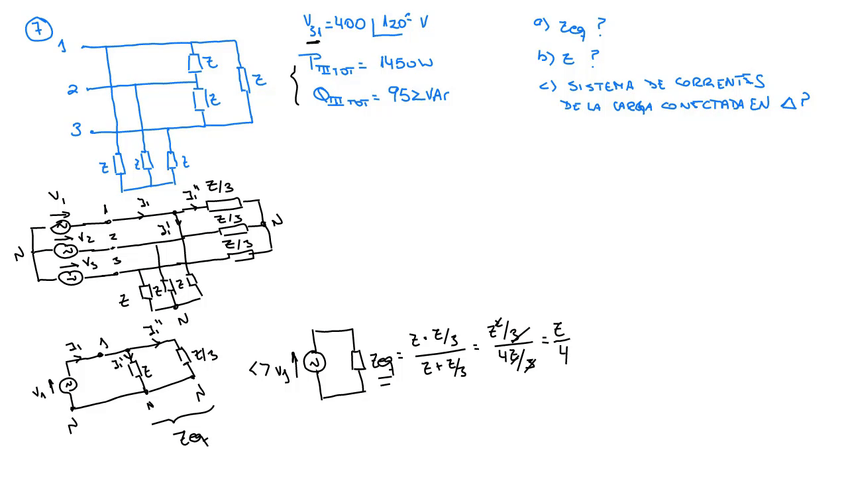 7
V₃₁ = 400 |120° V
P_III TOT = 1450 W
Q_III TOT = 952 VAr
a) Zeq ?
b) Z ?
c) SISTEMA DE CORRIENTES
DE LA CARGA CONECTADA EN Δ ?
1
2
3
Z
Z
Z
Z Z Z
V₁
1 I₁ I₁'' Z/3
N V₂ 2 I₁' Z/3 N
V₃ 3 Z/3
Z Z Z
N
I₁ 1 I₁''
V₁ I₁' Z Z/3
N N N
Zeq
<> V₁ Zeq = Z · Z/3 / Z + Z/3 = Z²/3 / 4Z/3 = Z/4